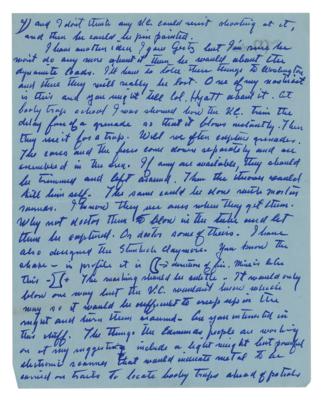 4) and I don't think any V.C. could resist shooting at it,
and then he could be pin pointed.
I have another idea I gave Gertz but I'm sure he
won't do any more about it than he would about the
dynamite loads. I'll have to take these things to Washington
and there they will really be lost. One of my
is this and you might tell Col. Hyatt about it. At
booby trap school I was showed how the V.C. trim the
delay fuze on a grenade so that it blows instantly. Then
they use it for a trap. Well we often capture grenades.
The cores and the fuze come down separately and are
assembled in the . If any are available, they should
be trimmed and left around. Then the thrower would
kill him self. The same could be done with mortar
rounds. I know they use ours when they get them.
Why not doctor them to blow in the tube and let
them be captured. Or doctor some of theirs. I have
also designed the claymore. You know the
shape - in profile it is direction of fire. Mine is like
this - The marking should be subtle. It would only
blow one way but the V.C. wouldn't know which
way so it would be difficult to creep up in the
night and turn them around. be you interested in
this stuff. The things the people are working
on at my suggestion include a light weight but powerful
electronic scanner that would indicate metal to be
carried on trails to locate booby traps ahead of patrols